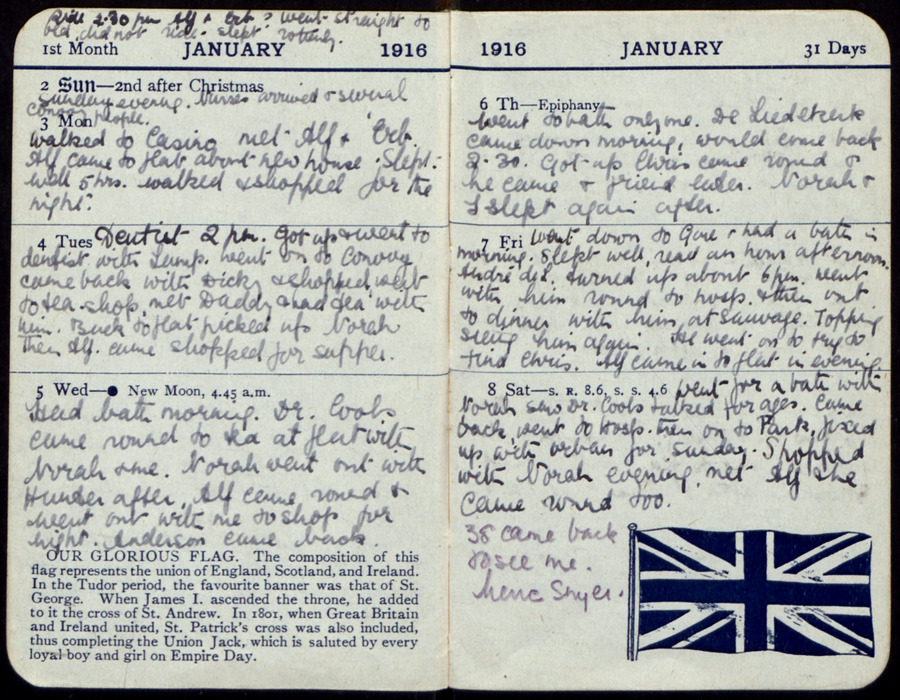 Ride 2.30 pm Alf & Erb? went straight to
bed did not ride. slept rottenly.
1st Month JANUARY 1916
2 Sun—2nd after Christmas
Sunday evening. Nurses arrived & several
convoy people.
3 Mon
walked to Casino met Alf & Erb.
Alf came to flat about new house. Slept
well 5 hrs. walked & shopped for the
night.
4 Tues Dentist 2 pm. Got up & went to
dentist with Lamp. went on to Convoy
came back with Dicky & shopped went
to tea-shop, met Daddy & had tea with
him. Back to flat picked up Norah
then Alf. came shopped for supper.
5 Wed—● New Moon, 4.45 a.m.
Had bath morning. Dr. Cools
came round to tea at flat with
Norah & me. Norah went out with
Hunter after, Alf came round &
went out with me to shop for
night. Anderson came back.
OUR GLORIOUS FLAG. The composition of this
flag represents the union of England, Scotland, and Ireland.
In the Tudor period, the favourite banner was that of St.
George. When James I. ascended the throne, he added
to it the cross of St. Andrew. In 1801, when Great Britain
and Ireland united, St. Patrick's cross was also included,
thus completing the Union Jack, which is saluted by every
loyal boy and girl on Empire Day.
1916 JANUARY 31 Days
6 Th—Epiphany
Went to bath only me. De Liedekerk
came down morning, would come back
2.30. Got up Chris came round &
he came & friend later. Norah &
I slept again after.
7 Fri Went down to Gare & had a bath in
morning. Slept well, read an hour afternoon.
André del. turned up about 6 pm. went
with him round to hosp. & then out
to dinner with him at Sauvage. Topping
seeing him again. He went on to try to
find Chris. Alf came in to flat in evening.
8 Sat—S. R. 8.6, S. S. 4.6 Went for a bath with
Norah saw Dr. Cools talked for ages. Came
back, went to Hosp. then on to Park, fixed
up with Urban for Sunday. Shopped
with Norah evening, met Alf she
came round too.
38 came back
to see me.